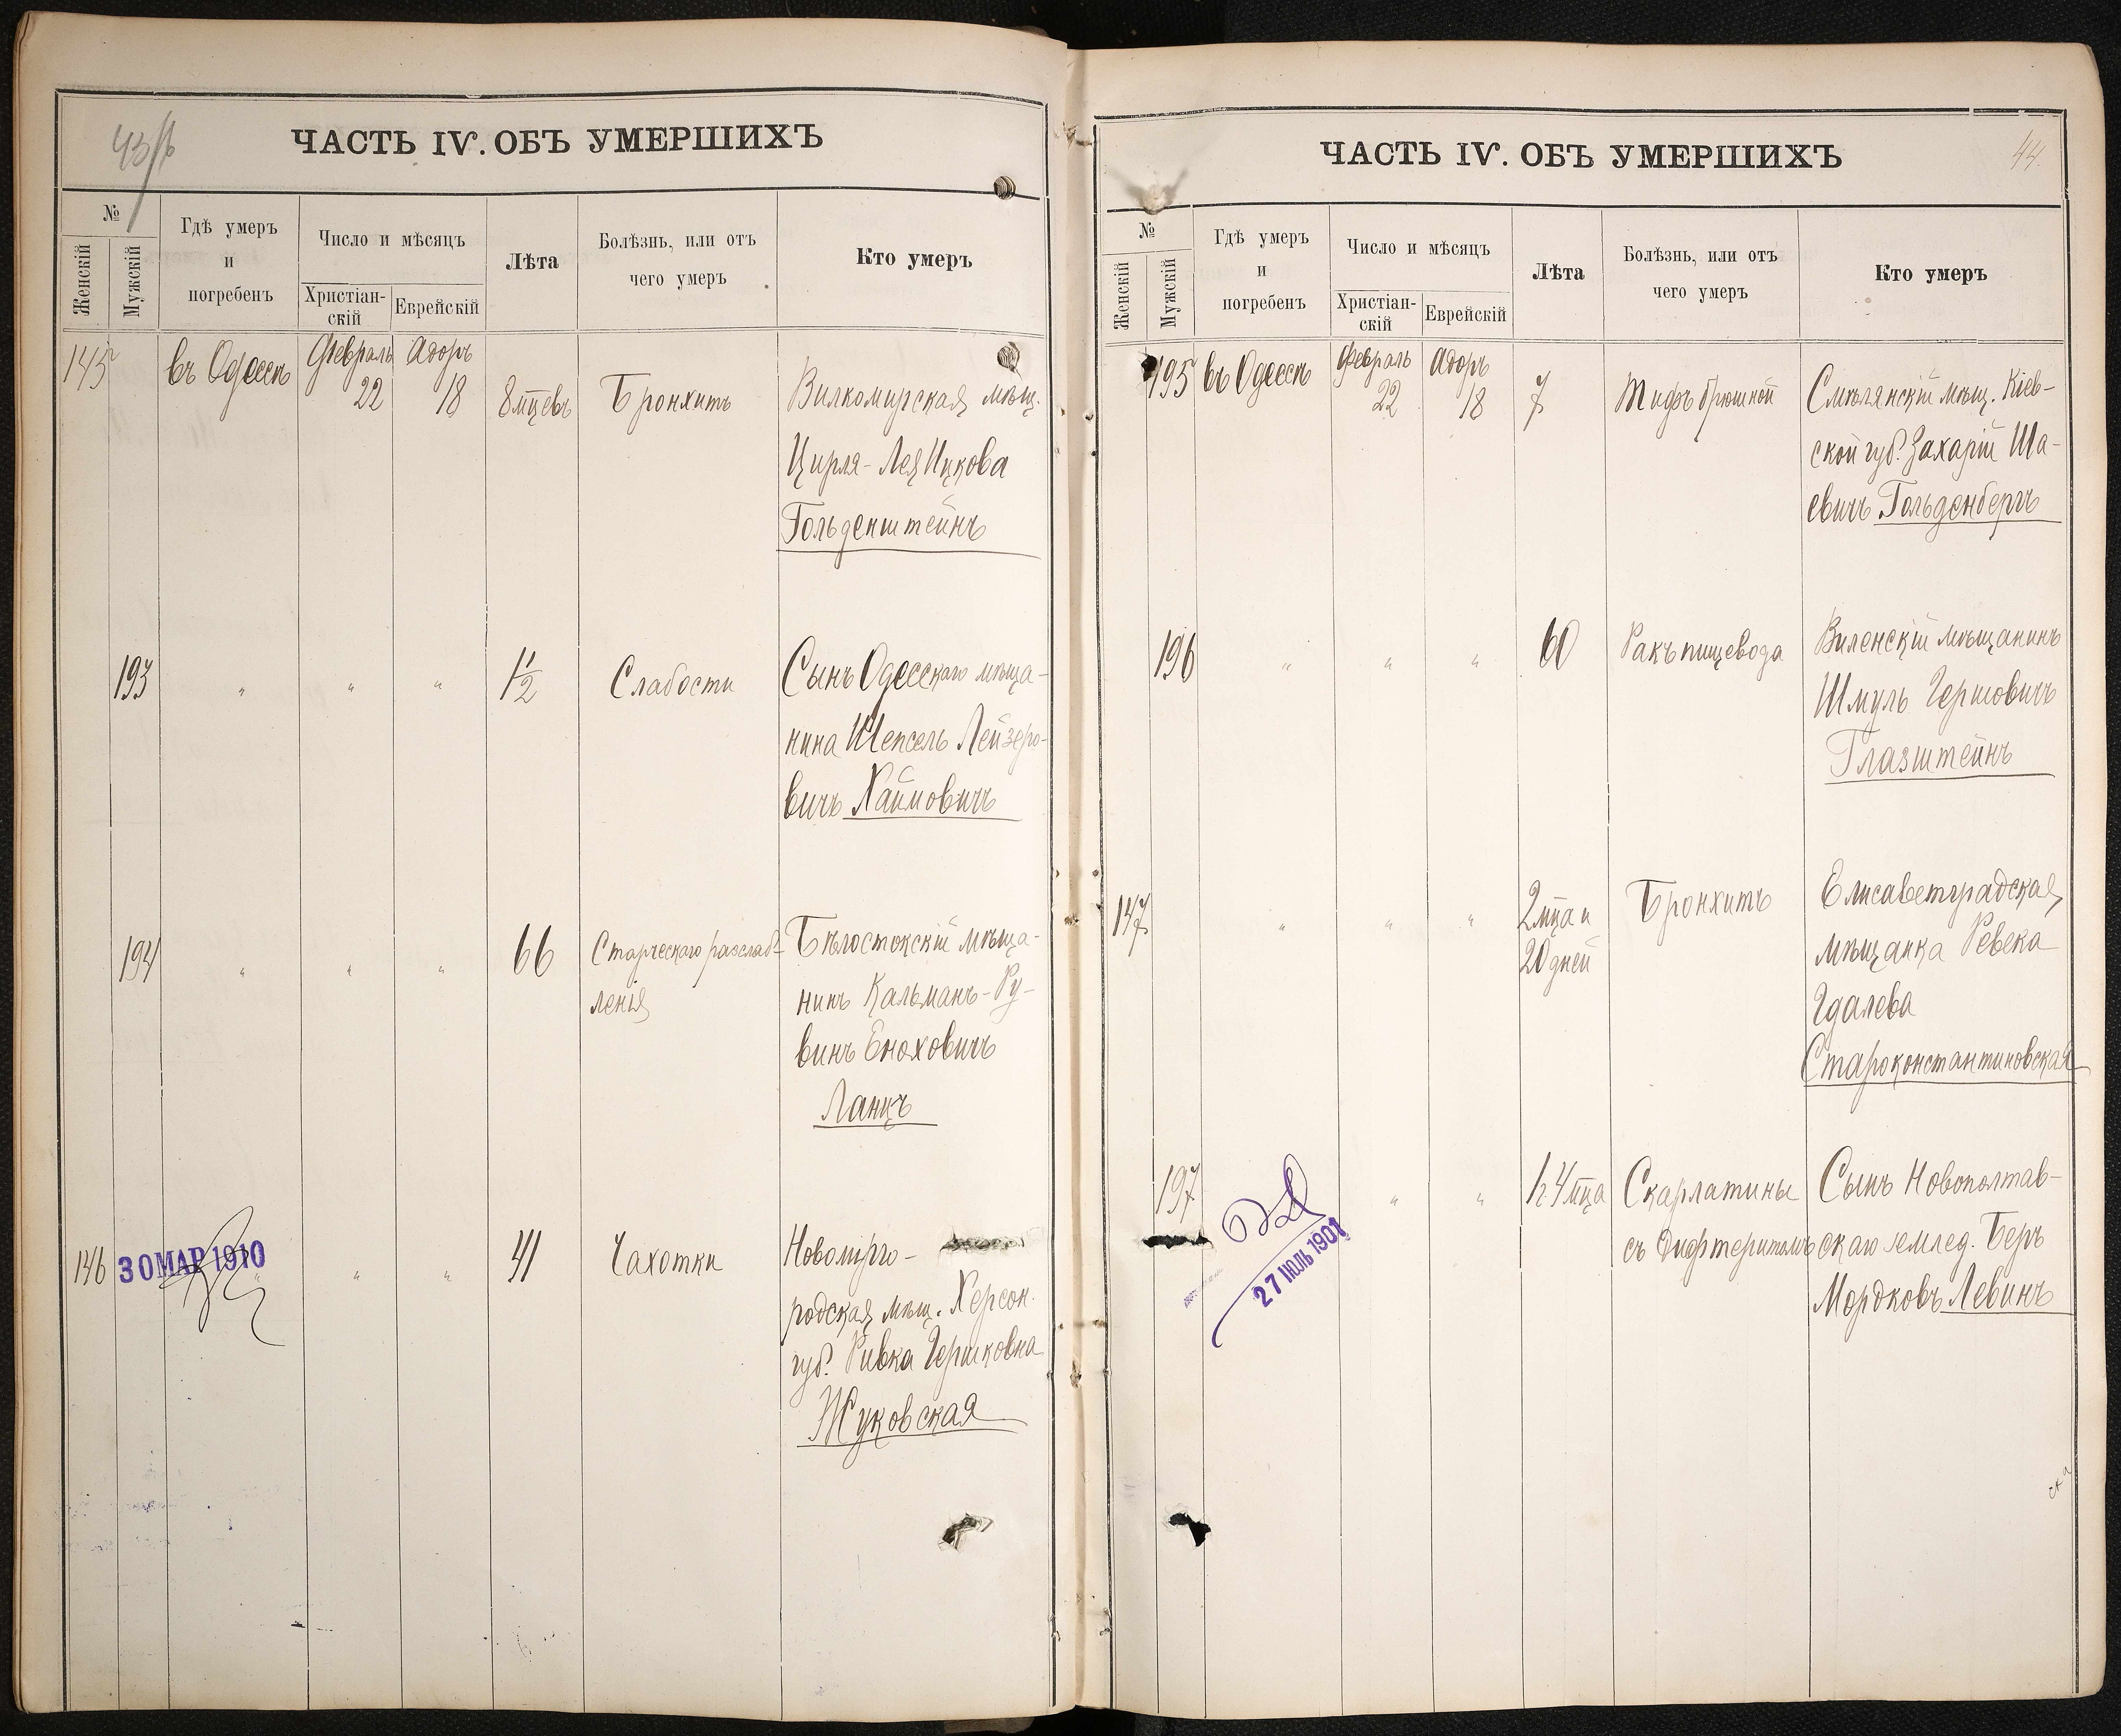 43/b
ЧАСТЬ IV. ОБЪ УМЕРШИХЪ
№
Женскій
Мужскій
Гдѣ умеръ
и
погребенъ
Число и мѣсяцъ
Христіан-
скій
Еврейскій
Лѣта
Болѣзнь, или отъ
чего умеръ
Кто умеръ
145
въ Одессѣ
Февраль
22
Адоръ
18
8 мцевъ
Бронхитъ
Вилкомирская мѣщ.
Цирля-Лея Ицкова
Гольденштейнъ
193
"
"
"
1 1/2
Слабости
Сынъ Одесскаго мѣща-
нина Шепсель Лейзеро-
вичъ Хаймовичъ
194
"
"
"
66
Старческаго разслаб-
ленія
Бѣлостокскій мѣща-
нинъ Кальманъ-Ру-
винъ Еноховичъ
Ланцъ
146
30 МАР 1910
"
"
"
41
Чахотки
Новомирго-
родская мѣщ. Херсон.
губ. Ривка Гершковна
Жуковская
44.
ЧАСТЬ IV. ОБЪ УМЕРШИХЪ
№
Женскій
Мужскій
Гдѣ умеръ
и
погребенъ
Число и мѣсяцъ
Христіан-
скій
Еврейскій
Лѣта
Болѣзнь, или отъ
чего умеръ
Кто умеръ
195
въ Одессѣ
Февраль
22
Адоръ
18
7
Тифъ брюшной
Смѣлянскій мѣщ. Кіев-
ской губ. Захарій Ша-
евичъ Гольденбергъ
196
"
"
"
60
Ракъ пищевода
Виленскій мѣщанинъ
Шмуль Гершовичъ
Глазштейнъ
147
"
"
"
2 мца и
20 дней
Бронхитъ
Елисаветградская
мѣщанка Ревека
Гдалева
Староконстантиновская
197
27 ІЮЛЬ 1901
"
"
4 мца
Скарлатины
съ Дифтеритомъ
Сынъ Новополтав-
скаго землед. Беръ
Мордковъ Левинъ